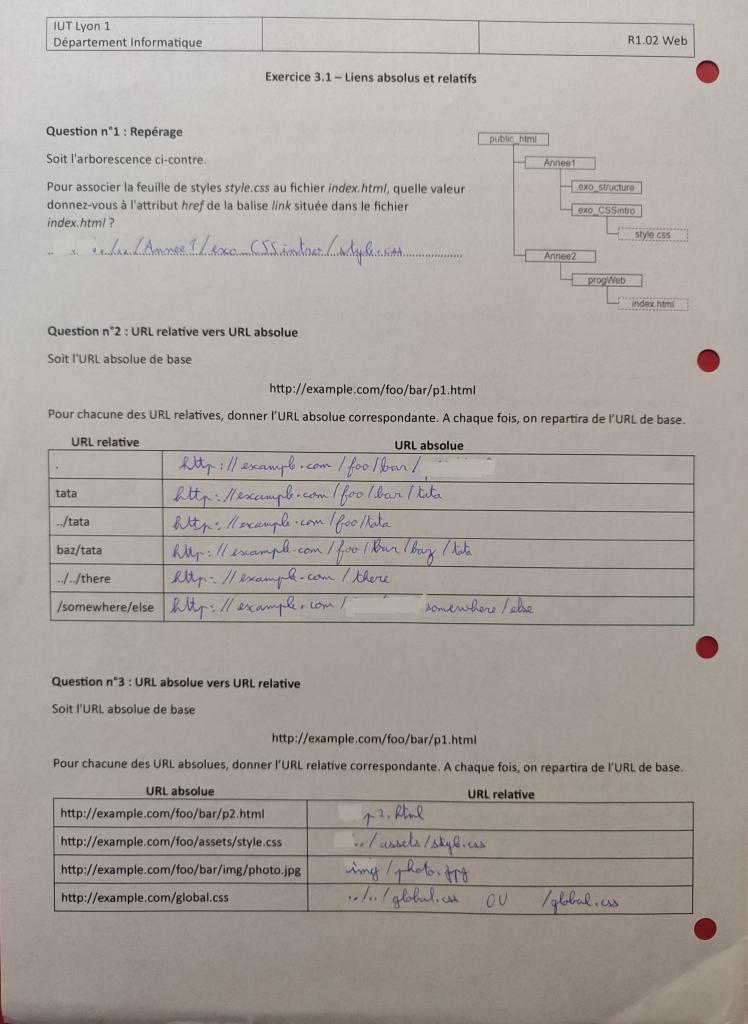 IUT Lyon 1
Département Informatique
R1.02 Web
Exercice 3.1 – Liens absolus et relatifs
Question n°1 : Repérage
Soit l'arborescence ci-contre.
Pour associer la feuille de styles style.css au fichier index.html, quelle valeur
donnez-vous à l'attribut href de la balise link située dans le fichier
index.html ?
../../Annee1/exo_CSSintro/style.css
public_html
Annee1
exo_structure
exo_CSSintro
style.css
Annee2
progWeb
index.html
Question n°2 : URL relative vers URL absolue
Soit l'URL absolue de base
http://example.com/foo/bar/p1.html
Pour chacune des URL relatives, donner l'URL absolue correspondante. A chaque fois, on repartira de l'URL de base.
URL relative URL absolue
. http://example.com/foo/bar/
tata http://example.com/foo/bar/tata
../tata http://example.com/foo/tata
baz/tata http://example.com/foo/bar/baz/tata
../../there http://example.com/there
/somewhere/else http://example.com/ somewhere/else
Question n°3 : URL absolue vers URL relative
Soit l'URL absolue de base
http://example.com/foo/bar/p1.html
Pour chacune des URL absolues, donner l'URL relative correspondante. A chaque fois, on repartira de l'URL de base.
URL absolue URL relative
http://example.com/foo/bar/p2.html p2.html
http://example.com/foo/assets/style.css ../assets/style.css
http://example.com/foo/bar/img/photo.jpg img/photo.jpg
http://example.com/global.css ../../global.css OU /global.css